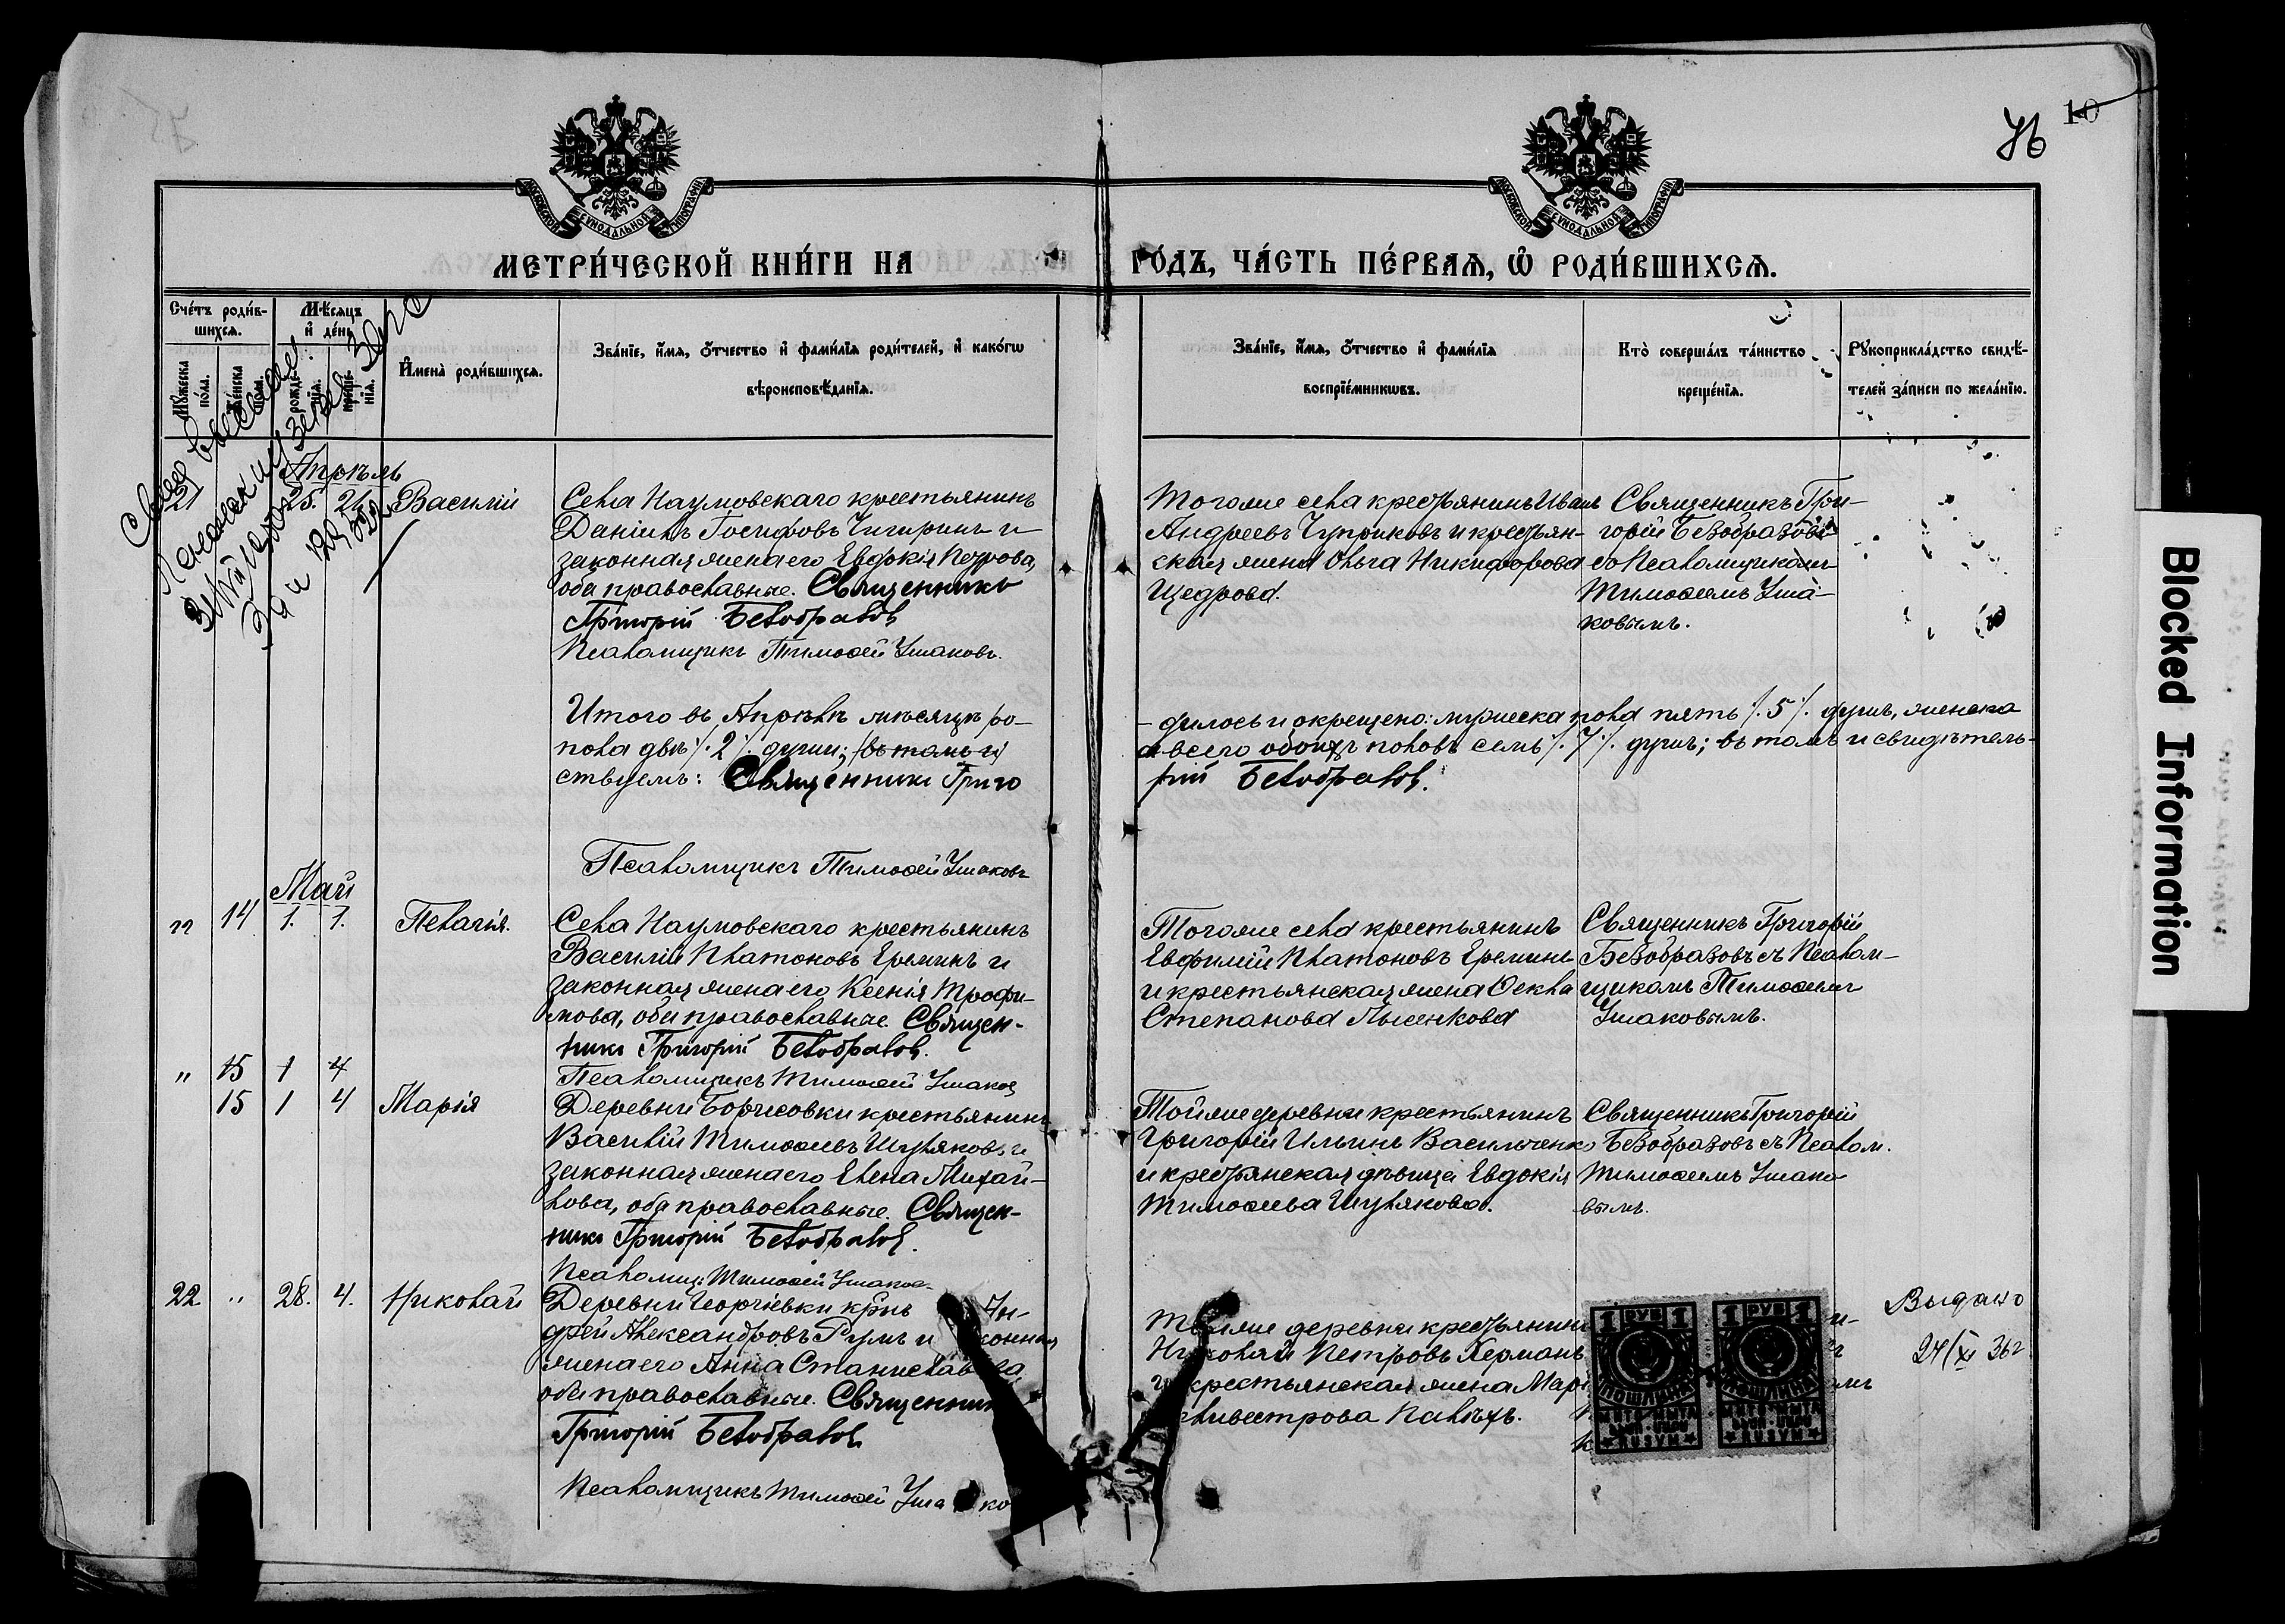 76
10
МОСКОВСКОЙ СѴНОДАЛЬНОЙ ТИПОГРАФІИ
МОСКОВСКОЙ СѴНОДАЛЬНОЙ ТИПОГРАФІИ
МЕТРИ́ЧЕСКОЙ КНИ́ГИ НА
ГО́ДЪ, ЧА́СТЬ ПЕ́РВАѦ, Ѡ҆ РОДИ́ВШИХСѦ.
Сче́тъ роди́в-
шихсѧ.
Мꙋ́жеска по́ла.
Же́нска по́ла.
Мѣ́сяцъ
и҆ де́нь
рожде́-
нїѧ.
креще́-
нїѧ.
И҆мена̀ роди́вшихсѧ.
Зва́нїе, и҆́мѧ, ѻ҆́тчество и҆ фами́лїѧ роди́телей, и҆ како́гѡ
вѣроисповѣ́данїѧ.
Зва́нїе, и҆́мѧ, ѻ҆́тчество и҆ фами́лїѧ
воспрїе́мникѡвъ.
Кто̀ соверша́лъ та́инство
креще́нїѧ.
Рꙋкоприкла́дство свидѣ́-
телей за́писи по жела́нїю.
Апрѣль
21 25. 26 Василій
Села Наумовскаго крестьянинъ
Даніилъ Іосифовъ Чигиринъ и
законная жена его Евдокія Петрова,
оба православные. Священникъ
Григорій Безобразовъ
Псаломщикъ Тимоѳей Ушаковъ.
Тогоже села крестьянинъ Иванъ
Андреевъ Чуприковъ и крестьян-
ская жена Ольга Никифорова
Щедрова.
Священникъ Гри-
горій Безобразовъ
съ Псаломщикомъ
Тимоѳеемъ Уша-
ковымъ.
Итого въ Апрѣлѣ мѣсяцѣ ро-
дилось и окрещено: мужеска пола пять ./.5./. душъ, женска
пола двѣ ./.2./. души; (въ томъ и)
а всего обоихъ половъ семь ./.7./. душъ; въ томъ и свидѣтель-
ствуемъ: Священникъ Григо
рій Безобразовъ.
Псаломщикъ Тимоѳей Ушаковъ
Май
" 14 1. 1. Пелагія.
Села Наумовскаго крестьянинъ
Василій Платоновъ Ереминъ и
законная жена его Ксенія Трофи-
мова, оба православные. Священ-
никъ Григорій Безобразовъ.
Псаломщикъ Тимоѳей Ушаковъ
Тогоже села крестьянинъ
Евфимій Платоновъ Ереминъ
и крестьянская жена Ѳекла
Степанова Лысенкова
Священникъ Григорій
Безобразовъ съ Псалом-
щикомъ Тимоѳеемъ
Ушаковымъ.
" 15 1 4
15 1 4 Марія
Деревни Борисовки крестьянинъ
Василій Тимоѳеевъ Шуляковъ и
законная жена его Елена Михай-
лова, оба православные. Священ-
никъ Григорій Безобразовъ.
Псаломщ. Тимоѳей Ушаковъ
Тойже деревни крестьянинъ
Григорій Ильинъ Васильченко
и крестьянская дѣвица Евдокія
Тимоѳеева Шулякова.
Священникъ Григорій
Безобразовъ съ Псалом.
Тимоѳеемъ Ушако
вымъ.
22 " 28. 4. Николай
Деревни Георгіевки кр-нъ Ан-
дрей Александровъ Румъ и законная
жена его Анна Станиславова
оба православные. Священникъ
Григорій Безобразовъ
Псаломщикъ Тимоѳей Ушако
Тойже деревни крестьянинъ
Николай Петровъ Германъ
и крестьянская жена Марі
Сильвестрова Павлюхъ.
1 РУБ 1
ПОШЛИНА
1 РУБ 1
ПОШЛИНА
Выдано
24/XI 36г
Blocked Information